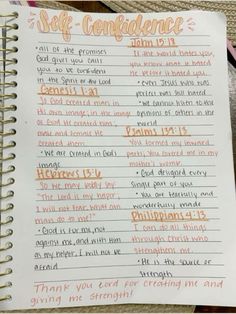 Self-Confidence
• all of the promises
God gives you calls
you to be confident
in the Spirit of the Lord
Genesis 1:27
So God created man in
His own image, in the image
of God He created
them; male and female He
created them.
• We are created in God's
image
Hebrews 13:6
So we may boldly say
"The Lord is my helper;
I will not fear. What can
man do to me?"
• God is for me, not
against me, and with Him
as my helper, I will not be
afraid
John 15:18
If the world hates you,
you know that it hated
me before it hated you.
• even Jesus who was
perfect was still hated
• we cannot listen to the
opinions of others in the
world
Psalms 139:13
You formed my inward
parts; You covered me in my
mother's womb.
• God designed every
single part of you
• You are fearfully and
wonderfully made
Philippians 4:13
I can do all things
through Christ who
strengthens me.
• He is the source of
strength
Thank you Lord for creating me and
giving me strength!